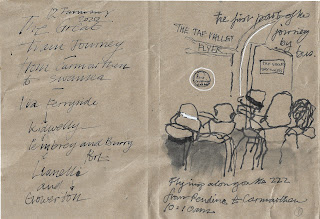 The Great
Train Journey
from Carmarthen
to Swansea
Via Ferryside
Kidwelly
Pembrey and Burry
Port
Llanelli
and
Gowerton
The first part of his
journey
by
bus.
"THE TAF VALLEY
FLYER
Flying along on the 222
from Pendine to Carmarthen
10.10am